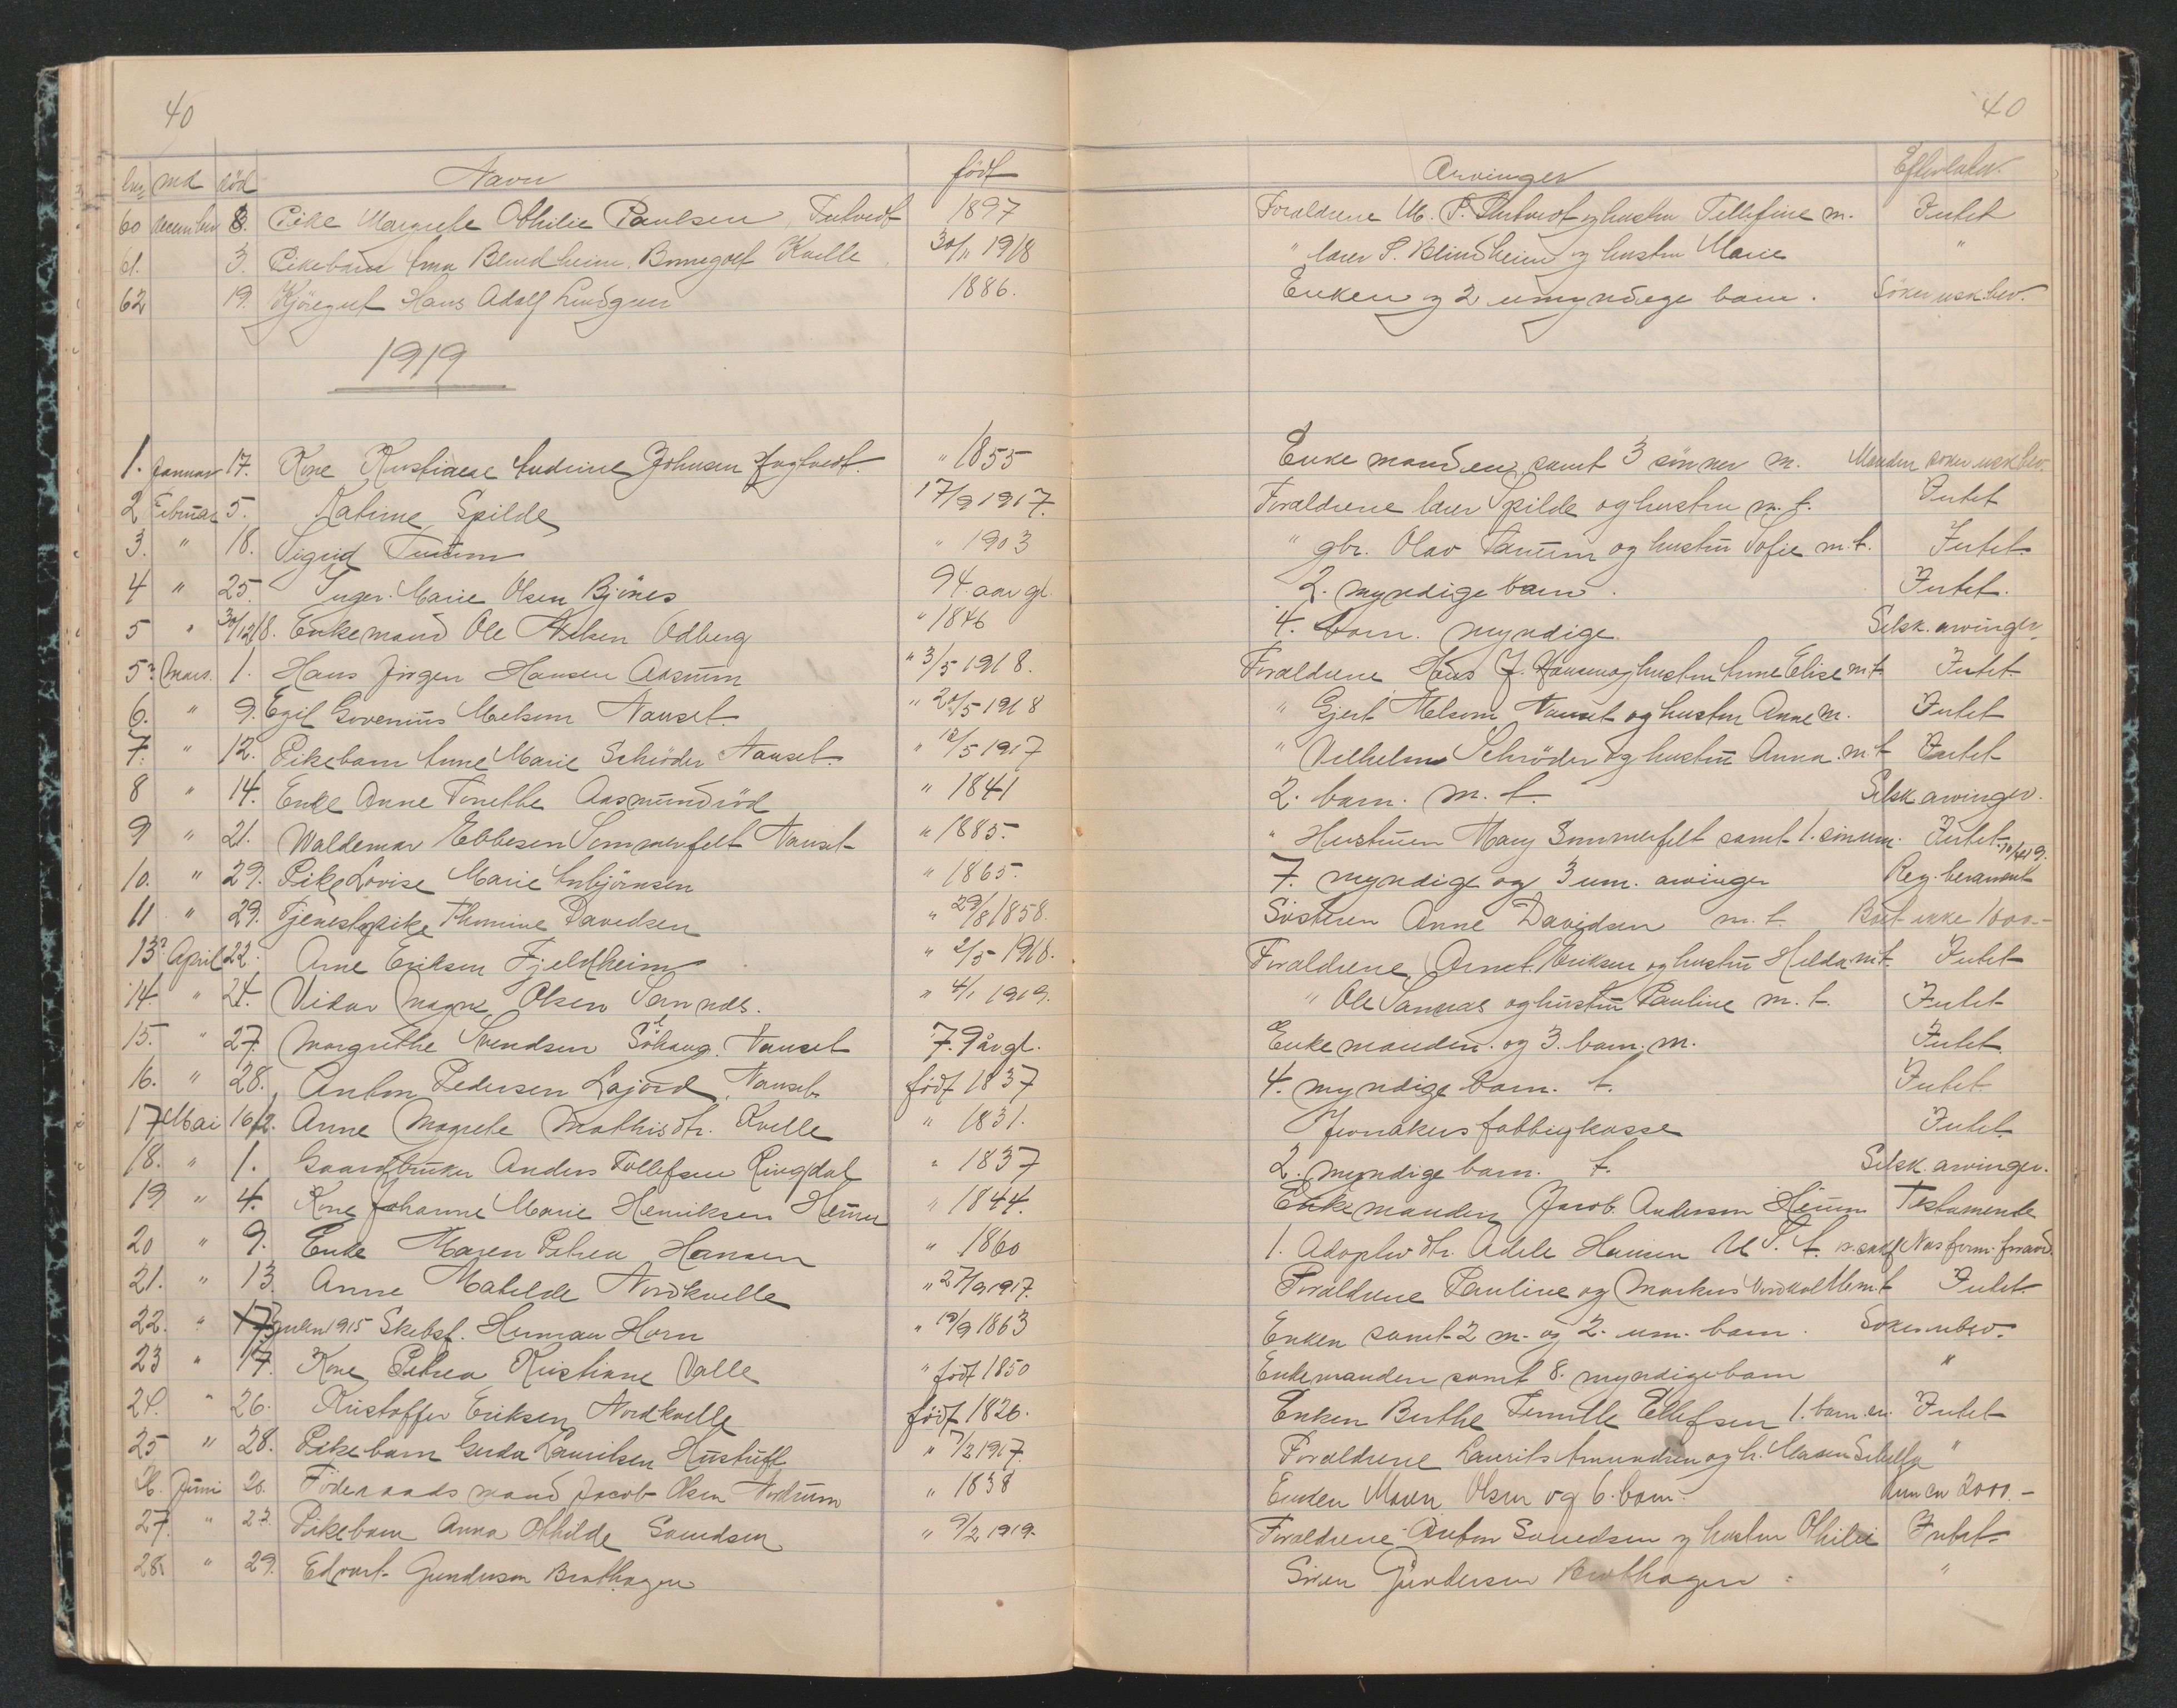 40
40
lnr md död Navn födt Arvinger Efterladen.
60 december 8. Pike Margrethe Othilie Paulsen, Tutvedt 1897 Foraldrene M. P. Tutvedt og hustru Tellefine m. Intet
61. 3. Pikebarn Blindheim Kvelle 30/11 1918 " lærer P. Blindheim og hustru Marie "
62 19. Kjöregut Hans Adolf Lindgren 1886. Enken og 2 umyndige barn. Söker usk.bev.
1919
1. Januar 17. Kone Kristiane Andrine Johnsen " 1855 Enkemanden samt 3 sönner m. Manden söker uskbev.
2 Februar 5. Katrine Spilde 17/9 1917. Foraldrene lærer Spilde og hustru m. f. Intet
3. " 18. Sigrid Tanum " 1903 " gbr. Olav Tanum og hustru Sofie m.f. Intet.
4 " 25. Inger Marie Olsen Bjönes 94 aar gl. 2. myndige barn. Intet.
5 " 30/12 18. Enkemand Ole Nilsen Odberg " 1846 4. barn. myndige. Selsk. arvinger
5? Mars. 1. Hans Jörgen Hansen Aasrum " 3/5 1918. Foraldrene Hans J. Hansen og hustru Anne Elise m.f. Intet.
6. " 9. Egil Govenius Melsom Nanset. " 20/5 1918 " Gjert Melsom Nanset og hustru Anne m. Intet
7. " 12. Pikebarn Anne Marie Schröder Nanset. " 12/5 1917 " Vilhelm Schröder og hustru Anna. m.f. Intet
8 " 14. Enke Anne Tonette Aasmundröd " 1841 2. barn. m. f. Selsk arvinger.
9 " 21. Waldemar Ebbesen Sommerfelt Nanset " 1885. " Hustruen Mary Sommerfelt samt 1. sön um. Intet 10/4 19.
10. " 29. Pike Lovise Marie Anbjörnsen " 1865. 7. myndige og 3 um. arvinger Reg. beramt
11 " 29. Tjenestepike Thomine Davidsen " 29/8 1858. Sösteren Anne Davidsen m. f. Boet ikke 1000.-
13? April 22. Arne Eriksen Fjeldheim " 2/5 1918. Foraldrene Arnt Eriksen og hustru Hilda m.f. Intet
14. " 24. Vidar Magne Olsen Sannæs. " 4/1 1919. " Ole Sannæs og hustru Pauline m. f. Intet
15. " 27. Margrethe Svendsen Söhaug. Nanset 7.9 år gl. Enkemanden. og 3. barn. m. Intet.
16. " 28. Anton Pedersen Lajord, Nanset. födt 1837 4. myndige barn. f. Intet.
17 Mai 16/2. Anne Magrete Mathisdtr. Kvelle " 1831. Jevnakers fattigkasse Intet.
18. " 1. Gaardbruker Anders Tollefsen Ringdal " 1837 2. myndige barn. f. Selsk. arvinger.
19 " 4. Kone Johanne Marie Henriksen Heum " 1844. Enkemanden Jacob Andersen Heum Testamente
20 " 9. Enke Maren Petrea Hansen " 1860 1. Adoptiv dtr. Adele Hansen
21. " 13. Anne Matilde Nordkvelle " 27/9 1917. Foraldrene Pauline og Markus Nordkvelle m.f. Intet.
22. " 17. 1915 Skibsf. Herman Horn " 19/9 1863 Enken samt 2 m. og 2. um. barn. Söker ubev.
23 " 17. Kone Petrea Kristiane Valle " födt 1850 Enkemanden samt 8. myndige barn "
24. " 26. Kristoffer Eriksen Nordkvelle födt 1826. Enken Berthe Ellefsen 1. barn. m. Intet
25 " 28. Pikebarn Gerda Lauritsen Hustuft " 7/2 1917. Foraldrene Laurits Amundsen og h. Maren "
26. Juni 20. Föderaadsmand Jacob Olsen Nordrum " 1838 Enken Maren Olsen og 6. barn. kun en 2000.-
27. " 23. Pikebarn Anna Othilde Svendsen " 9/2 1919. Foraldrene Anton Svendsen og hustru Othilie Intet
28. " 29. Edvart Gundersen Brathagen Sören Gundersen Brathagen "